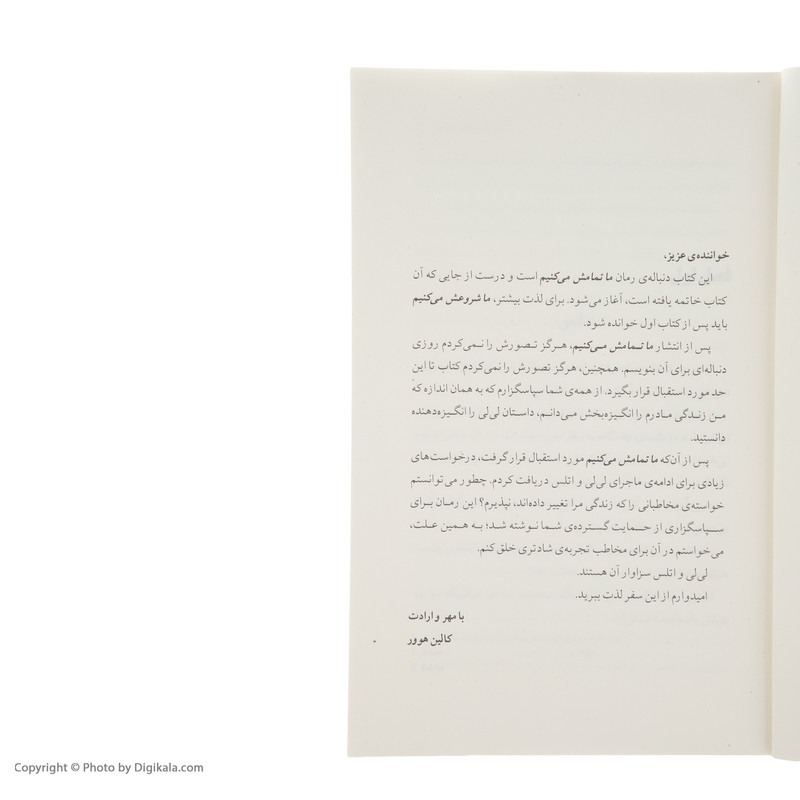 خواننده‌ی عزیز،
این کتاب دنباله‌ی رمان ما تمامش می‌کنیم است و درست از جایی که آن
کتاب خاتمه یافته است، آغاز می‌شود. برای لذت بیشتر، ما شروعش می‌کنیم
باید پس از کتاب اول خوانده شود.
پس از انتشار ما تمامش می‌کنیم، هرگز تصورش را نمی‌کردم روزی
دنباله‌ای برای آن بنویسم. همچنین، هرگز تصورش را نمی‌کردم کتاب تا این
حد مورد استقبال قرار بگیرد. از همه‌ی شما سپاسگزارم که به همان اندازه که
من زندگی مادرم را انگیزه‌بخش می‌دانم، داستان لی‌لی را انگیزه‌دهنده
دانستید.
پس از آن‌که ما تمامش می‌کنیم مورد استقبال قرار گرفت، درخواست‌های
زیادی برای ادامه‌ی ماجرای لی‌لی و اتلس دریافت کردم. چطور می‌توانستم
خواسته‌ی مخاطبانی را که زندگی مرا تغییر داده‌اند، نپذیرم؟ این رمان برای
سپاسگزاری از حمایت گسترده‌ی شما نوشته شد؛ به همین علت،
می‌خواستم در آن برای مخاطب تجربه‌ی شادتری خلق کنم.
لی‌لی و اتلس سزاوار آن هستند.
امیدوارم از این سفر لذت ببرید.
با مهر و ارادت
کالین هوور
Copyright © Photo by Digikala.com